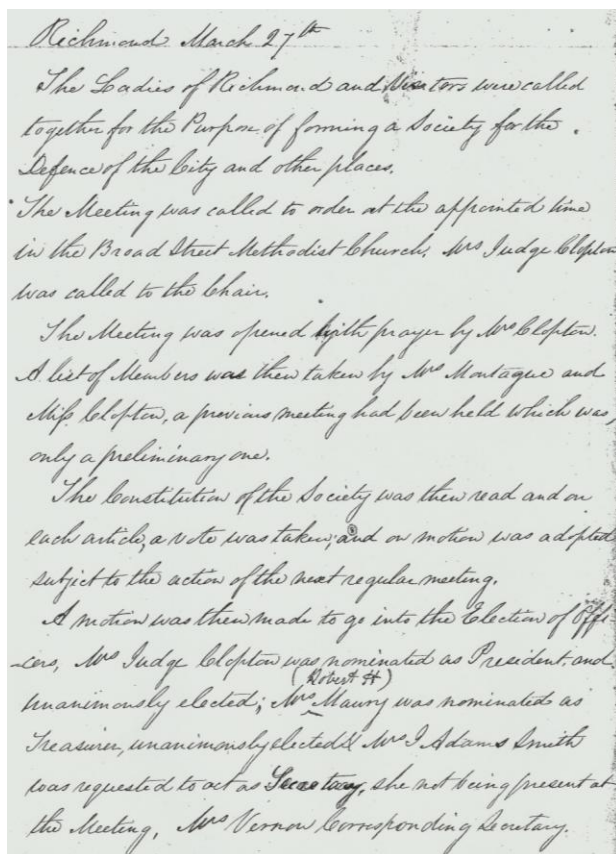 Richmond March 27th
The Ladies of Richmond and Visitors were called
together for the Purpose of forming a Society for the
Defence of the City and other places.
The Meeting was called to order at the appointed time
in the Broad Street Methodist Church. Mrs Judge Clopton
was called to the Chair.
The Meeting was opened with prayer by Mrs Clopton.
A list of Members was then taken by Mrs Montague and
Miss Clopton, a previous meeting had been held which was,
only a preliminary one.
The Constitution of the Society was then read and on
each article, a vote was taken, and on motion was adopted
subject to the action of the next regular meeting.
A motion was then made to go into the Election of Offi
-cers, Mrs Judge Clopton was nominated as President and
(Robert H)
unanimously elected; Mrs Maury was nominated as
Treasurer, unanimously elected & Mrs J Adams Smith
was requested to act as Secretary, she not being present at
the Meeting, Mrs Vernon Corresponding Secretary.